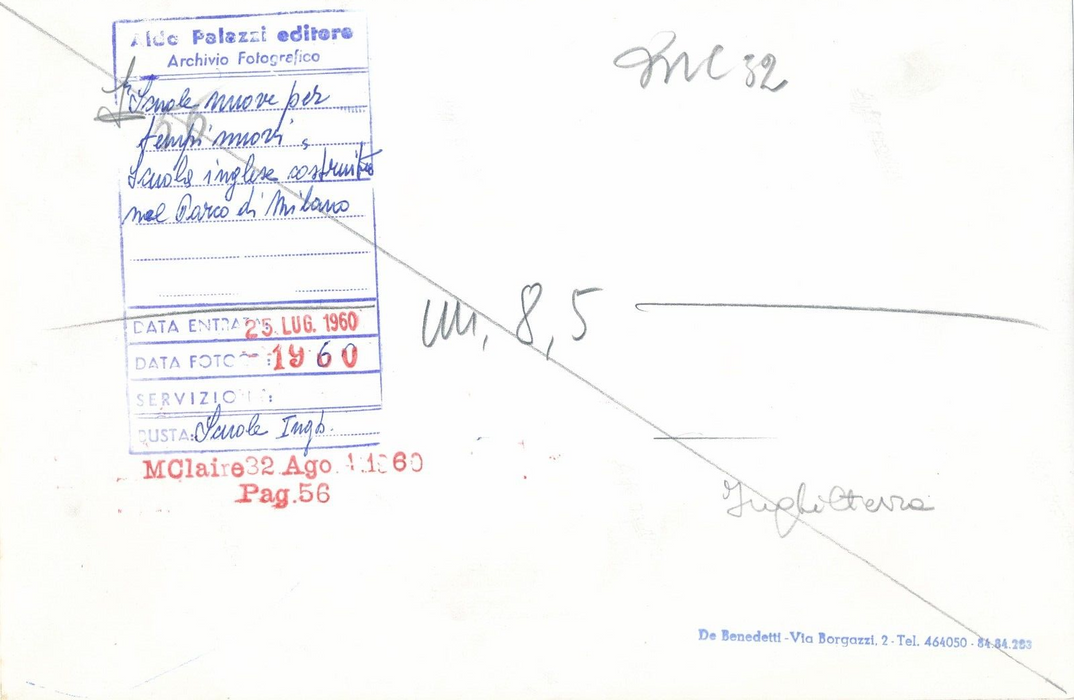 Aldo Palazzi editore
Archivio Fotografico
Scuole nuove per
tempi nuovi.
Scuola inglese costruita
nel Parco di Milano
DATA ENTRATA 25. LUG. 1960
DATA FOTO - 1960
SERVIZIO :
BUSTA: Scuole Ingh.
MClaire32 Ago. 1960
Pag.56
32
m. 8,5
Inghilterra
De Benedetti - Via Borgazzi, 2 - Tel. 464050 - 84.84.283